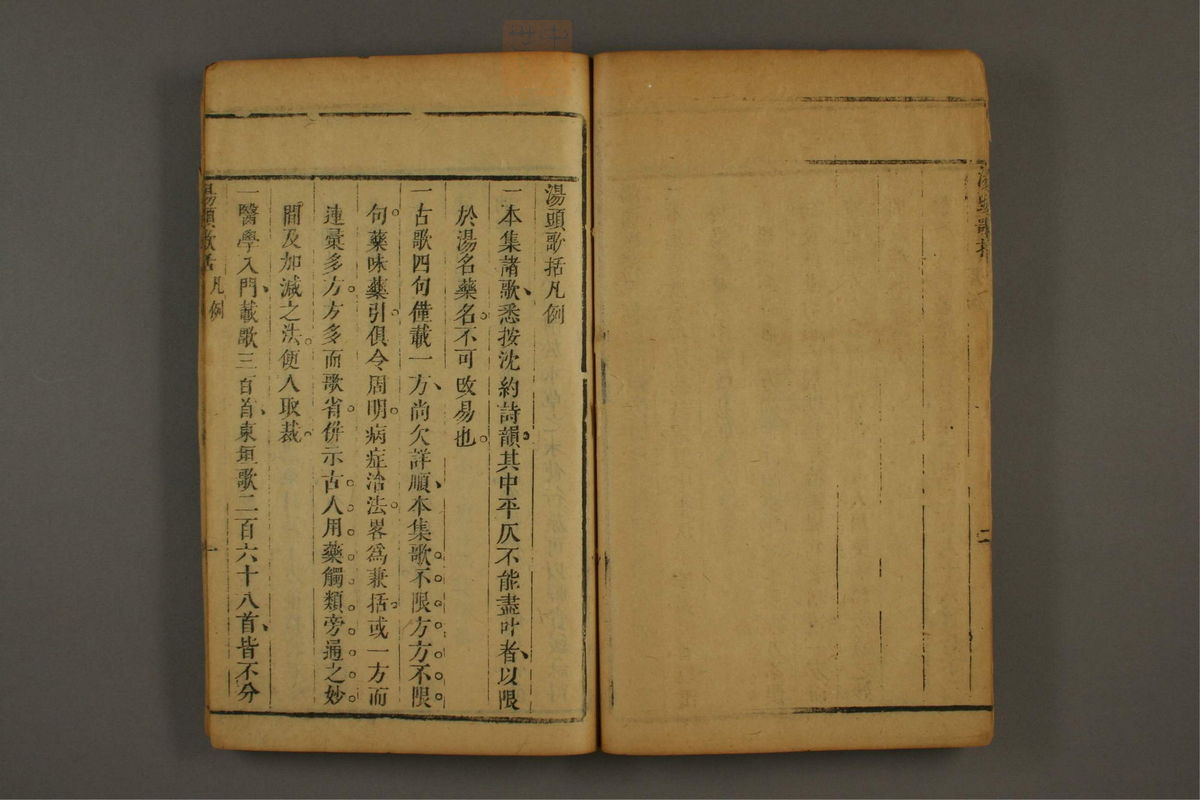 湯頭歌括
二
湯頭歌括凡例
一本集諸歌悉按沈約詩韻其中平仄不能盡叶者以限
於湯名藥名不可改易也
一古歌四句僅載一方尚欠詳順本集歌不限方方不限
句藥味藥引俱令周明病症治法畧爲兼括或一方而
連彙多方方多而歌省併示古人用藥觸類旁通之妙
間及加減之法便人取裁
一醫學入門載歌三百首東垣歌二百六十八首皆不分
湯頭歌括 凡例 一